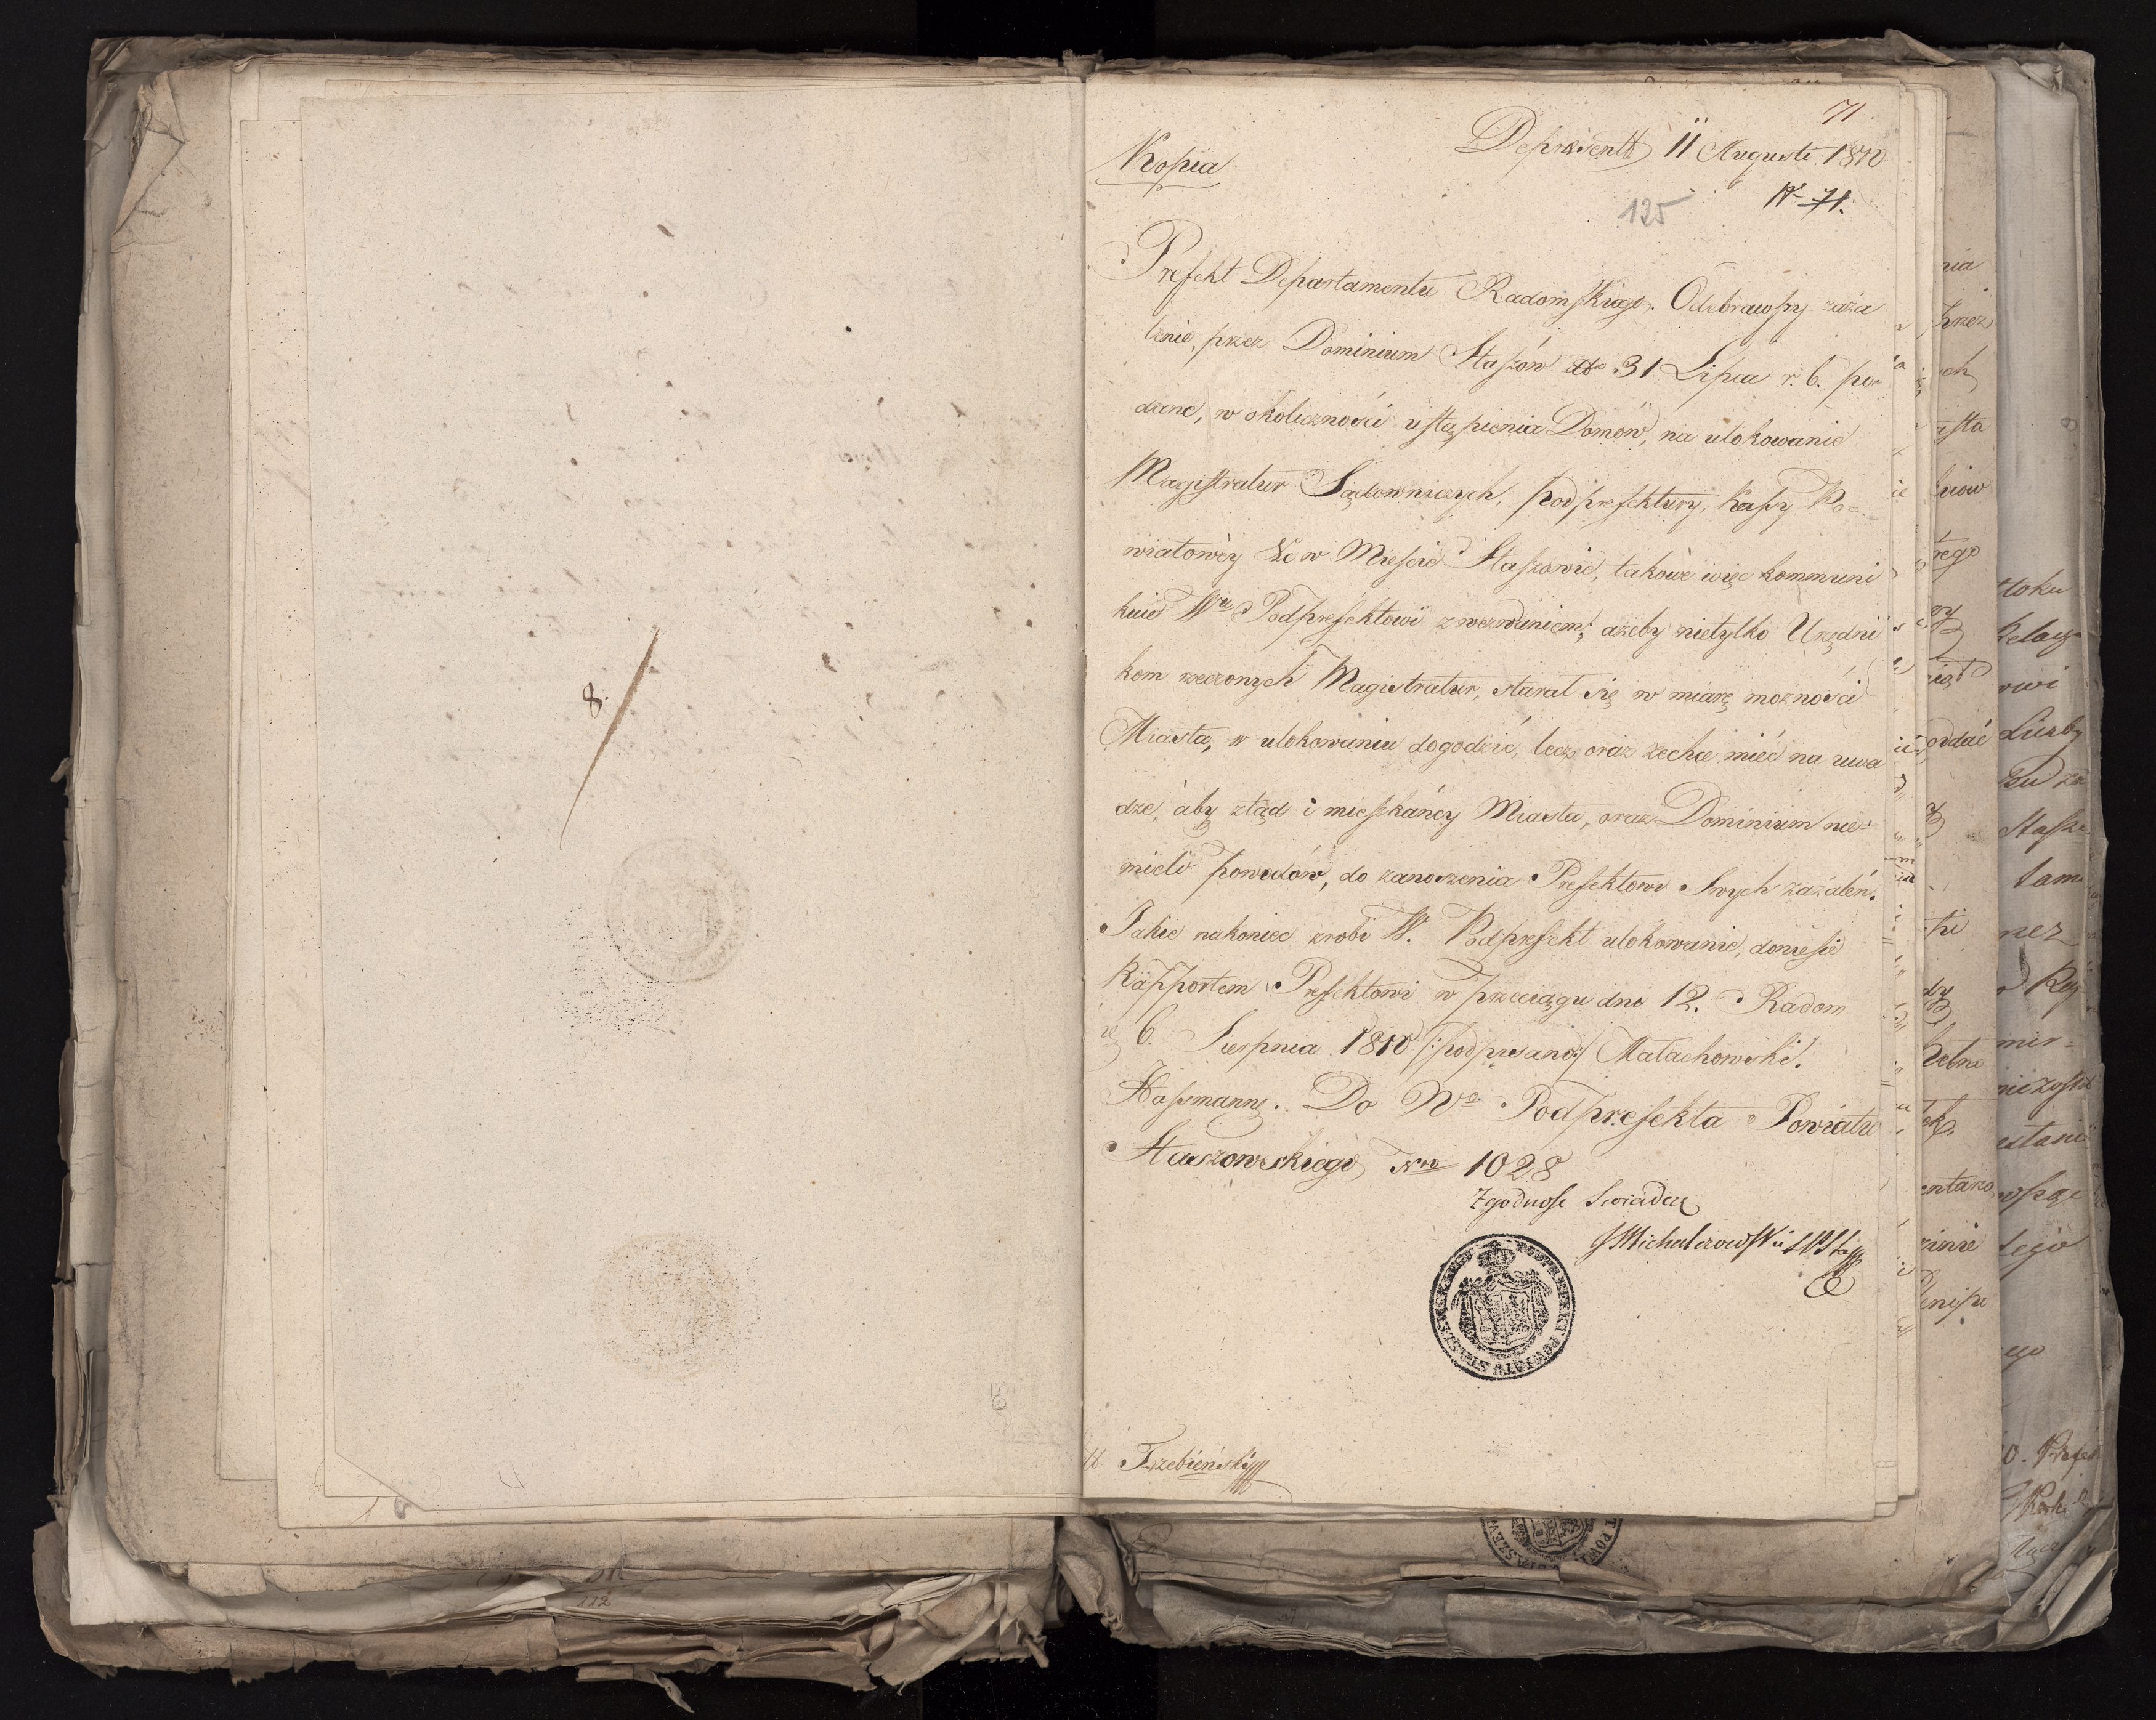 8.
71
Kopia
Depraesentt 11 Augusti 1810
N 71.
125
Prefekt Departamentu Radomskiego. Odebrawszy zaża
lenie, przez Dominium Staszów dto 31 Lipca r. b. po-
dane, w okoliczności ustąpienia Domów, na ulokowanie
Magistratur Sądowniczych, podprefektury, Kassy Po=
wiatowéy &c w Mieście Staszowie, takowe więc kommuni
kuie Wu Podprefektowi z wezwaniem; ażeby nietylko Urzędni
kom rzeczonych Magistratur, starał się w miarę możności
Miasta, w ulokowaniu dogodzić, lecz oraz zechce mieć na uwa
dze, aby ztąd i mieszkańcy Miasta, oraz Dominium nie=
mieli powodów, do zanoszenia Prefektowi Swych zażaleń.
Jakie nakoniec zrobi W. Podprefekt ulokowanie, doniesie
Rapportem Prefektowi w przeciągu dni 12. Radom
6. Sierpnia 1810 /:podpisano:/ Małachowski.
Hassmann. Do Wo Podprefekta Powiatu
Staszowskiego Nro 1028
Zgodność Swiadczę
Michalczowski
PODPREFEKT POWIATU STASZEWSKIEGO
Trzebieński
112